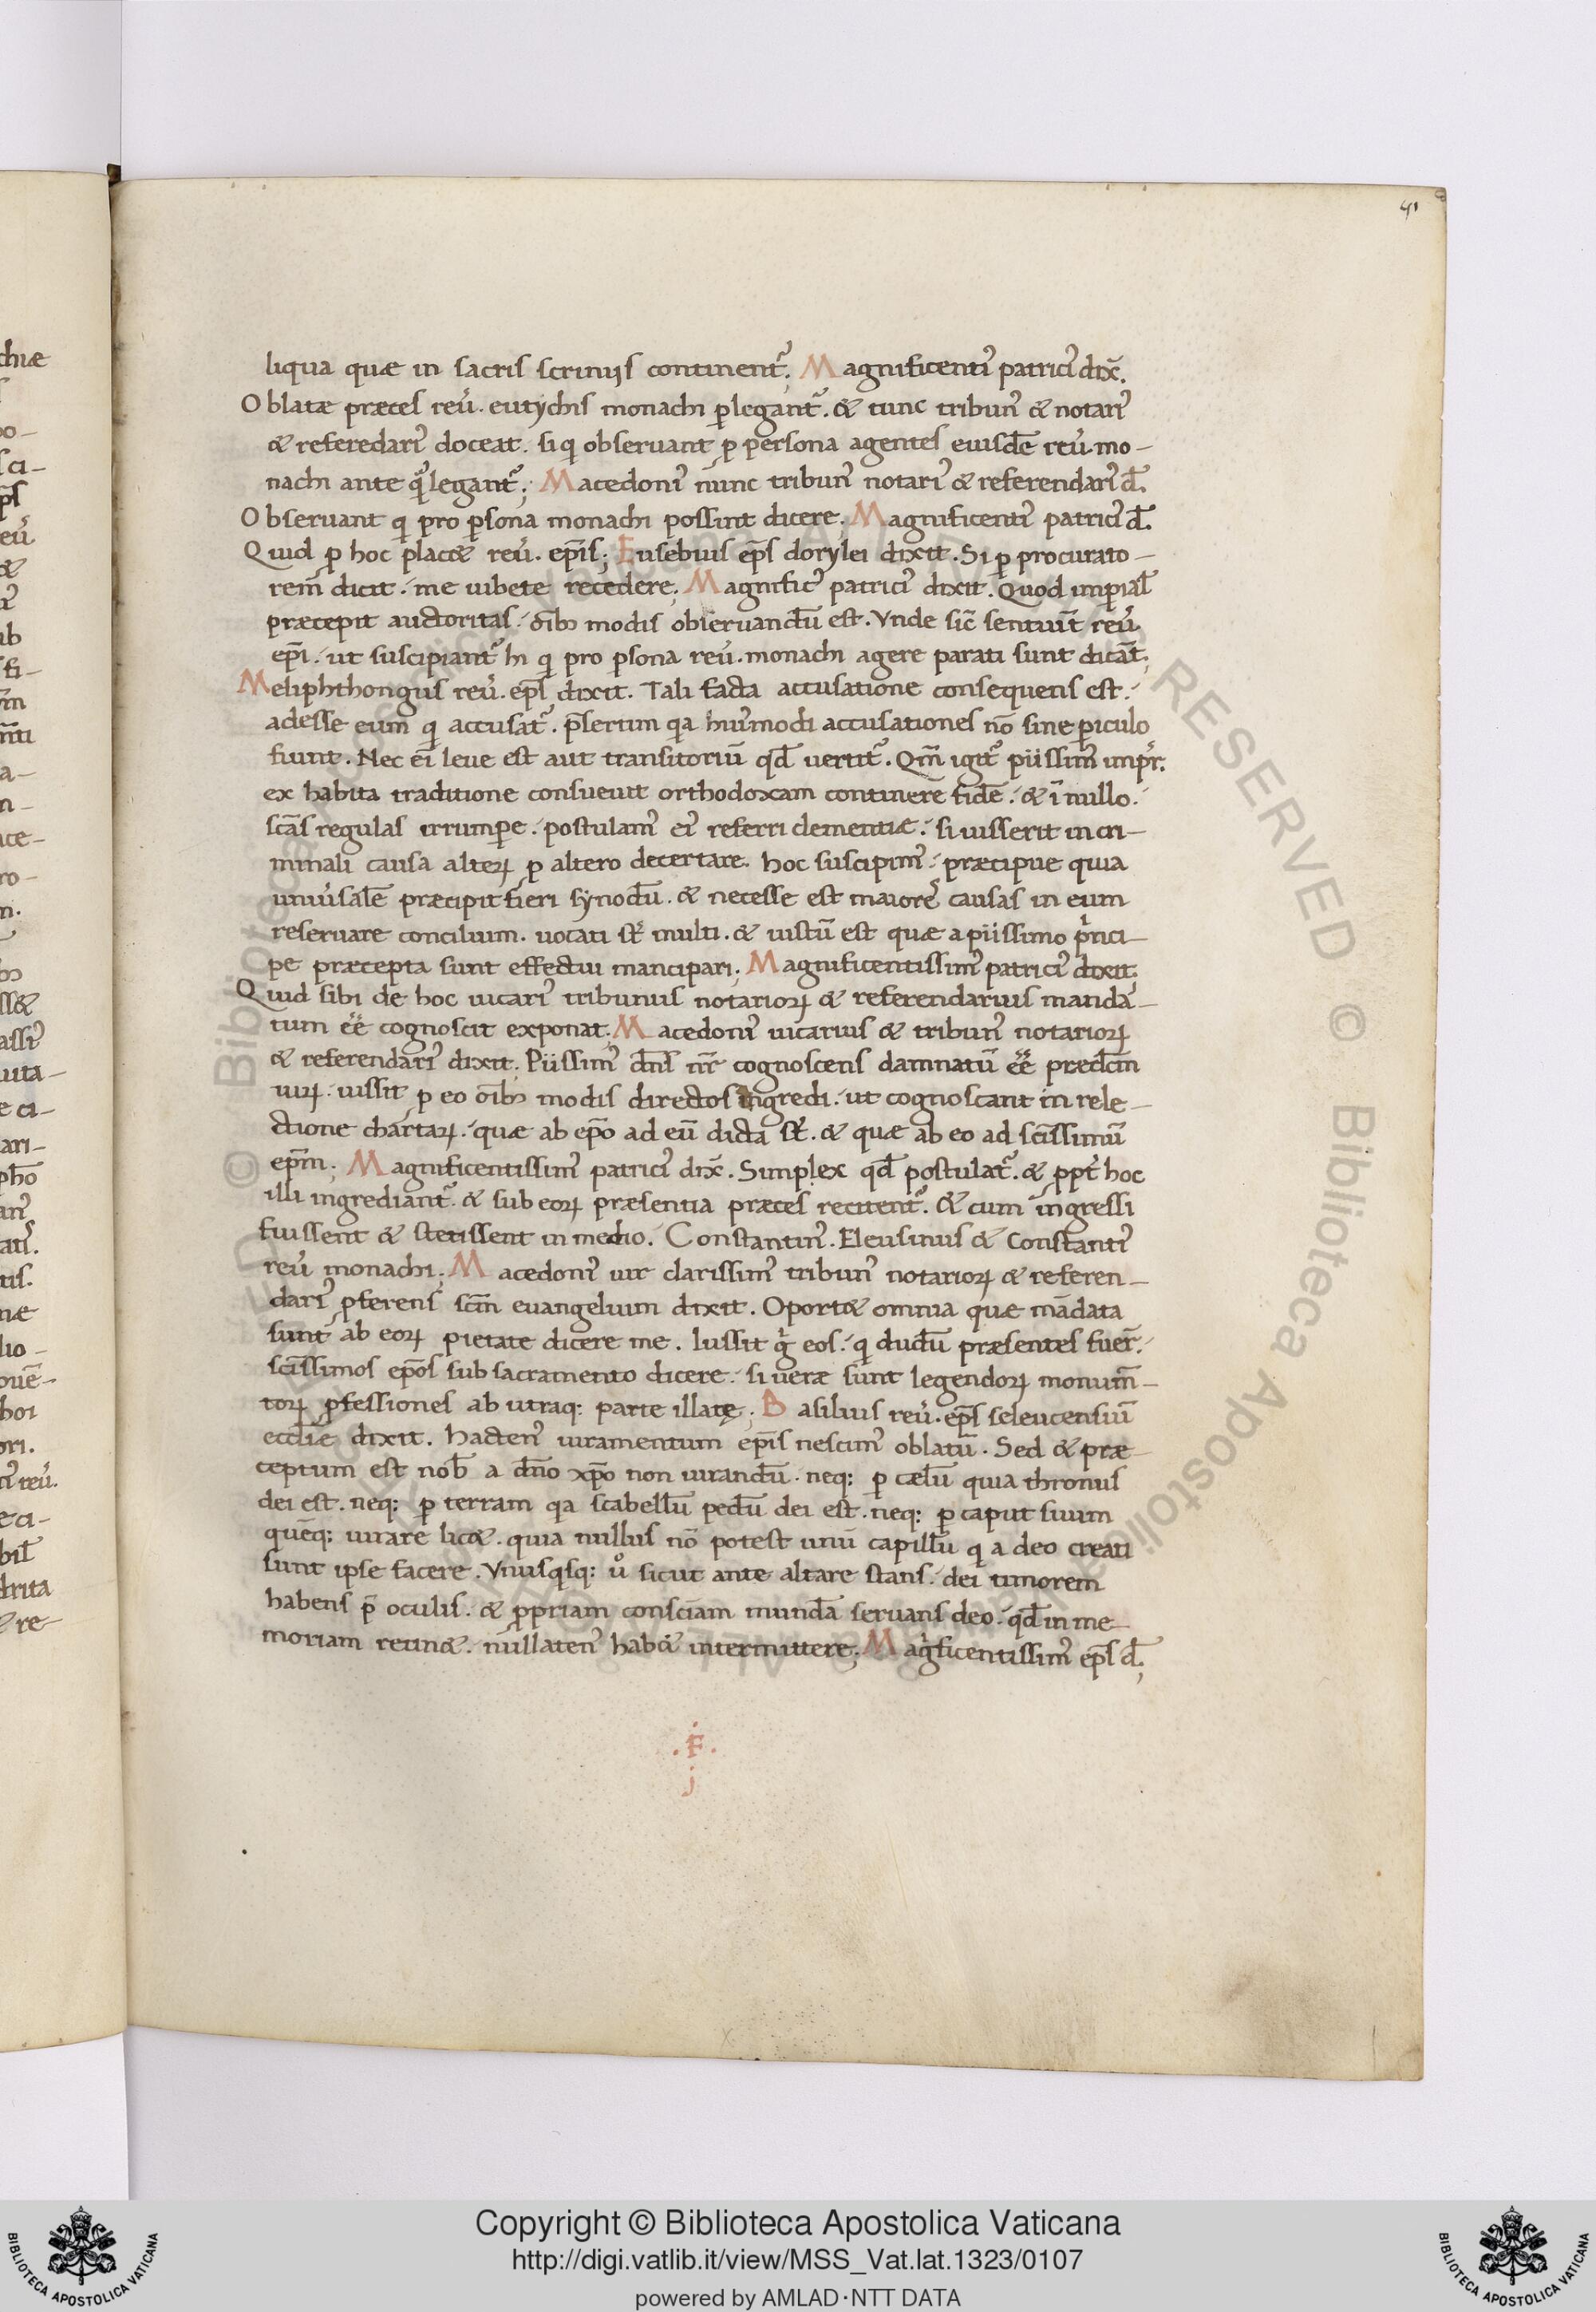 51
liqua quæ in sacris scriniis continent᷑. Magnificenti᷒ patrici᷒ dix̄.
Oblatæ præces reu᷑. eutychis monachi ꝑlegant᷑. & tunc tribun᷒ & notari᷒
& referedari᷒ doceat. si qi obseruant ꝓ persona agentes eiusdē reu᷑. mo-
nachi ante q̄ legant᷑; Macedoni᷒ nunc tribun᷒ notari᷒ & referendari᷒ d̄.
Obseruant qi pro ꝑsona monachi possint dicere. Magnificenti᷒ patrici᷒ d̄.
Quid ꝑ hoc plac& reu᷑. ep̄is; Eusebius ep̄s dorylei dixit. Si ꝑ procurato-
rem̄ dicit. me iubete recedere; Magnific᷒ patrici᷒ dixit. Quod imꝑial̄
præcepit auctoritas. oīb; modis obseruandū est. Vnde sic̄ sentiūt reu᷑
ep̄i. ut suscipiant᷑ hi qi pro ꝑsona reu᷑. monachi agere parati sunt dicāt;
Meliphthongus reu᷑. ep̄s dixit. Tali facta accusatione consequens est.
adesse eum qi accusat᷑. p̄sertim qa hui᷒modi accusationes nō sine ꝑiculo
fiunt. Nec ei̅ leue est aut transitoriū qd̄ uertit᷑. Qm̄ igit᷑ piissim᷒ imꝑr.
ex habita traditione consueuit orthodoxam continere fidē. & ī nullo.
sc̄as regulas irrumꝑe. postulam᷒ ei᷒ referri clementiæ. si iusserit in cri-
minali causa alteꝝ ꝓ altero decertare. hoc suscipim᷒. præcipue quia
uniu᷑salē præcipit fieri synodū. & necesse est maiores causas in eum
reseruare concilium. uocati st̄ multi. & uistū est quæ a piissimo pͥnci-
pe præcepta sunt effectui mancipari; Magnificentissim᷒ patrici᷒ dixit;
Quid sibi de hoc uicari᷒ tribunus notarioꝝ & referendarius manda-
tum ēē cognoscit exponat; Macedoni᷒ uicarius & tribun᷒ notarioꝝ
& referendari᷒ dixit; Piissim᷒ dn̄s nr̄ cognoscens damnatū ēē prædcm̄
uiꝝ. iussit ꝓ eo oīb; modis directos ingredi. ut cognoscant in rele-
ctione chartaꝝ. quæ ab ep̄o ad eū dicta st̄. & quæ ab eo ad sc̄issimū
ep̄m; Magnificentissim᷒ patrici᷒ dix̄. Simplex qd̄ postulat᷑. & ꝓpt᷑ hoc
illi ingrediant᷑. & sub eoꝝ præsentia præces recitent᷑. & cum ingressi
fuissent & stetissent in medio. Constantin᷒. Eleusinus & Constanti᷒
reu᷑ monachi. Macedoni᷒ uir clarissim᷒ tribun᷒ notarioꝝ & referen-
dari᷒ ꝓferens sc̄m euangelium dixit. Oport& omnia quæ mādata
sunt ab eoꝝ pietate dicere me. Iussit gͥ eos. qi dudū præsentes fuer̄.
sc̄issimos ep̄os sub sacramento dicere. si ueræ sunt legendoꝝ monum̄-
toꝝ ꝓfessiones ab utraq; parte illatę. Basilius reu᷑. ep̄s seleucensiū
ecclīe dixit. hacten᷒ iuramentum ep̄is nescim᷒ oblatū. Sed & præ-
ceptum est nob̄ a dn̄o xp̄o non iurandū. neq; ꝑ cælū quia thronus
dei est. neq; ꝑ terram qa scabellū pedū dei est. neq; ꝑ caput suum
quēq; iurare lic&. quia nullus nō potest unū capillū qi a deo creati
sunt ipse facere. Vnusqsq; u᷑o sicut ante altare stans. dei timorem
habens p̄ oculis. & ꝓpriam consciam mundā seruans deo. qd̄ in me-
moriam retin&. nullaten᷒ hab& intermittere; Magͥficentissim᷒ ep̄s d̄;
.F.
j
Copyright © Biblioteca Apostolica Vaticana
http://digi.vatlib.it/view/MSS_Vat.lat.1323/0107
powered by AMLAD·NTT DATA
BIBLIOTECA APOSTOLICA VATICANA
BIBLIOTECA APOSTOLICA VATICANA